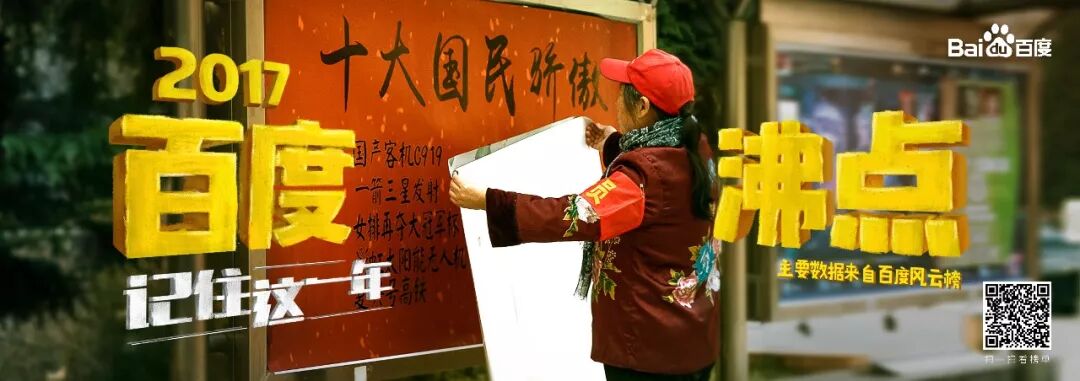 Bai 百度
2017
百度 沸点
记住这一年
主要数据来自百度风云榜
扫一扫看榜单
十大国民骄傲
国产客机C919
一箭三星发射
女排再夺大冠军杯
太阳能无人机
号高铁
员